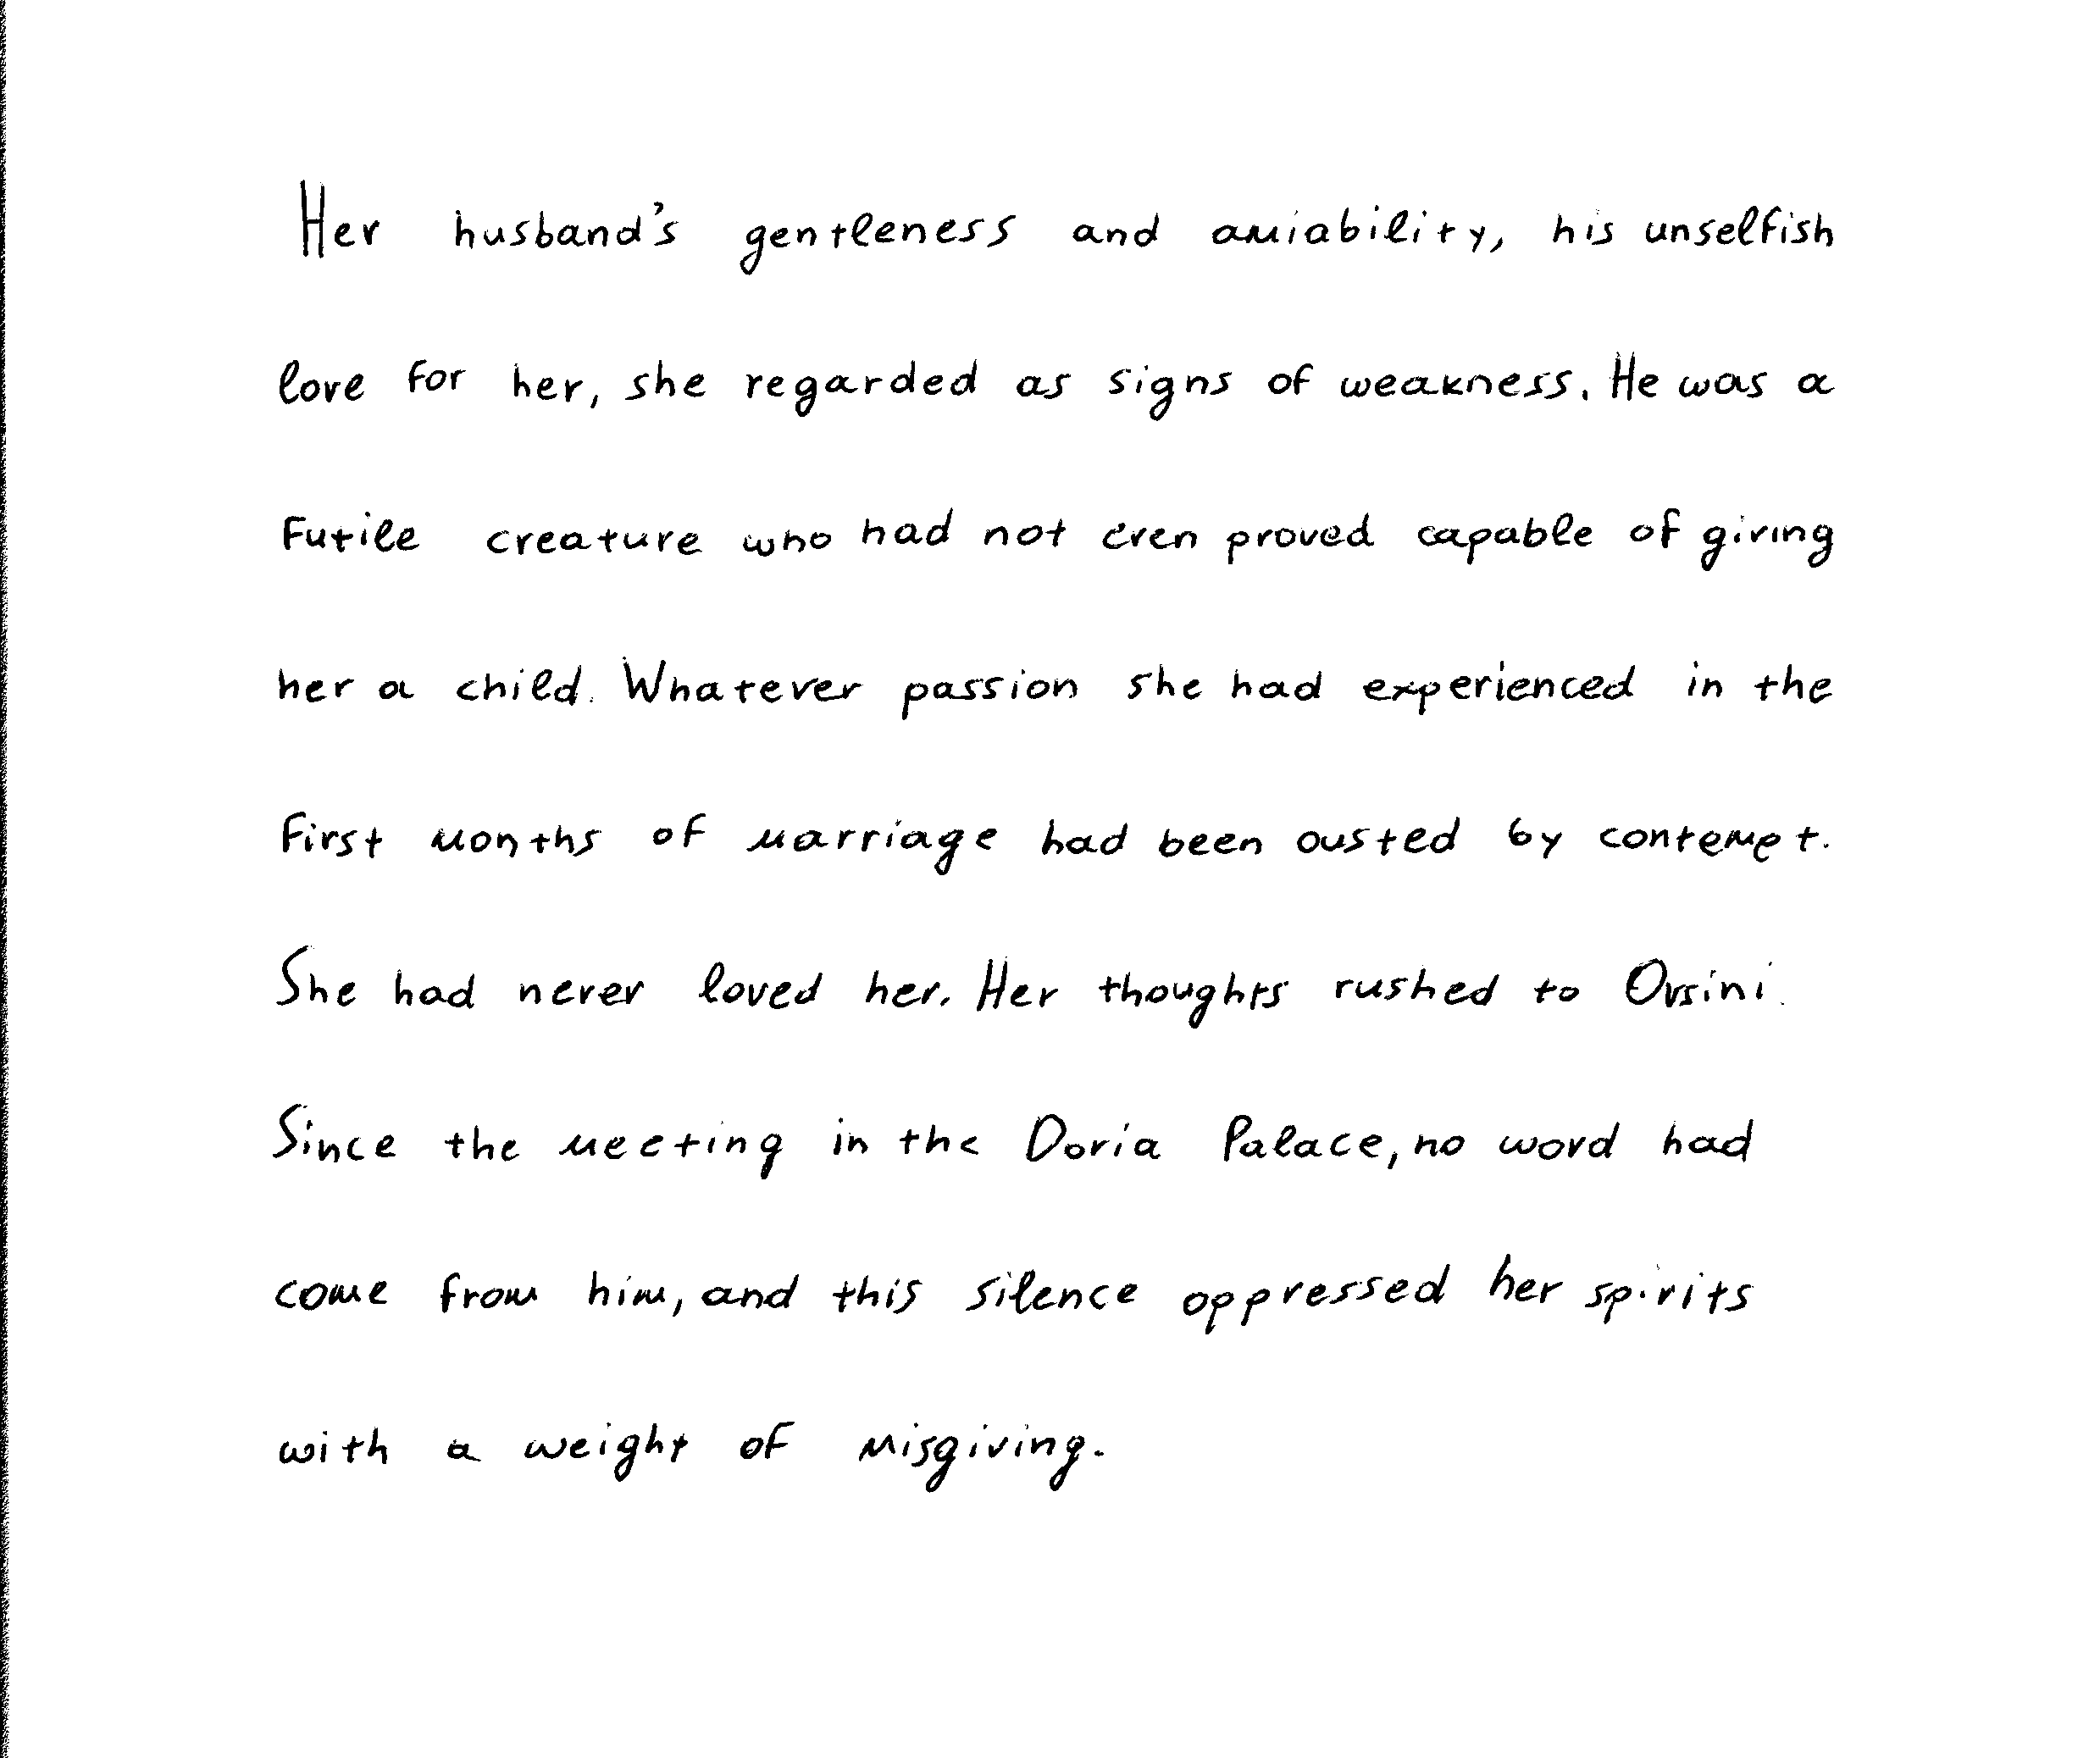 Her husband's gentleness and amiability, his unselfish
love for her, she regarded as signs of weakness. He was a
futile creature who had not even proved capable of giving
her a child. Whatever passion she had experienced in the
first months of marriage had been ousted by contempt.
She had never loved her. Her thoughts rushed to Orsini.
Since the meeting in the Doria Palace, no word had
come from him, and this silence oppressed her spirits
with a weight of misgiving.